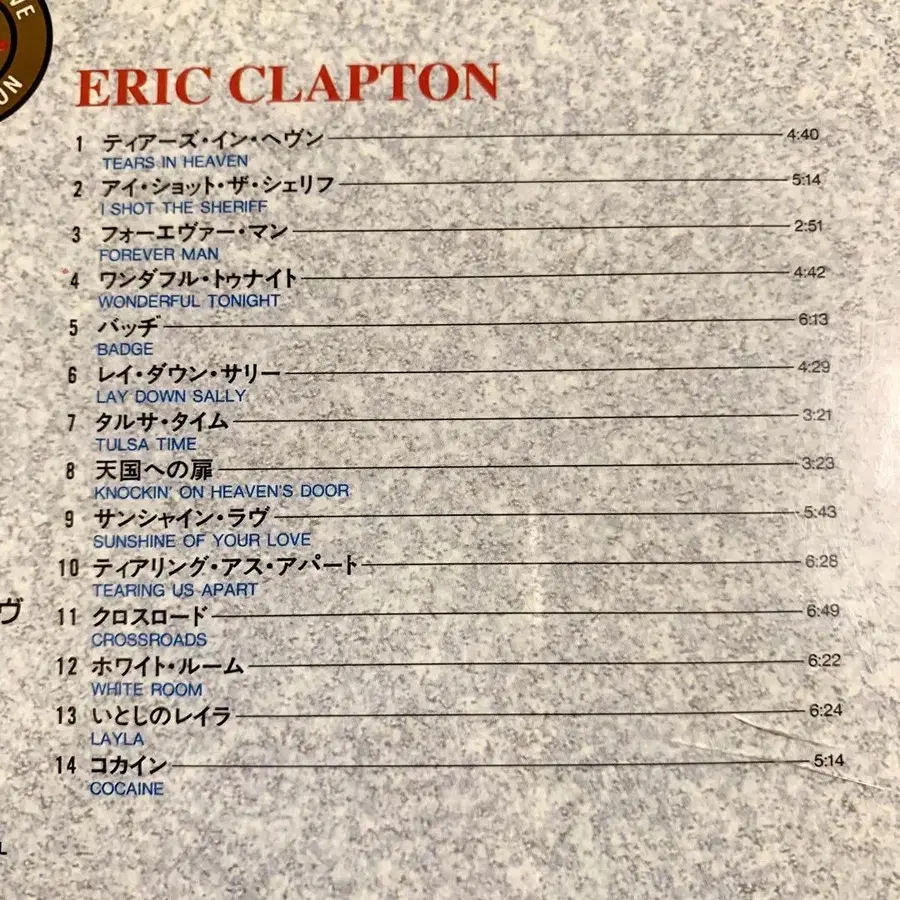 VE
ON
ERIC CLAPTON
1 ティアーズ・イン・ヘヴン 4:40
TEARS IN HEAVEN
2 アイ・ショット・ザ・シェリフ 5:14
I SHOT THE SHERIFF
3 フォーエヴァー・マン 2:51
FOREVER MAN
4 ワンダフル・トゥナイト 4:42
WONDERFUL TONIGHT
5 バッヂ 6:13
BADGE
6 レイ・ダウン・サリー 4:29
LAY DOWN SALLY
7 タルサ・タイム 3:21
TULSA TIME
8 天国への扉 3:23
KNOCKIN' ON HEAVEN'S DOOR
9 サンシャイン・ラヴ 5:43
SUNSHINE OF YOUR LOVE
10 ティアリング・アス・アパート 6:28
TEARING US APART
ヴ
11 クロスロード 6:49
CROSSROADS
12 ホワイト・ルーム 6:22
WHITE ROOM
13 いとしのレイラ 6:24
LAYLA
14 コカイン 5:14
COCAINE
L